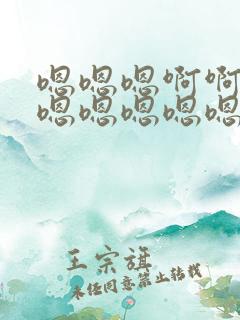 嗯嗯嗯啊啊
嗯嗯嗯嗯嗯
王宗旗
未经同意禁止转载